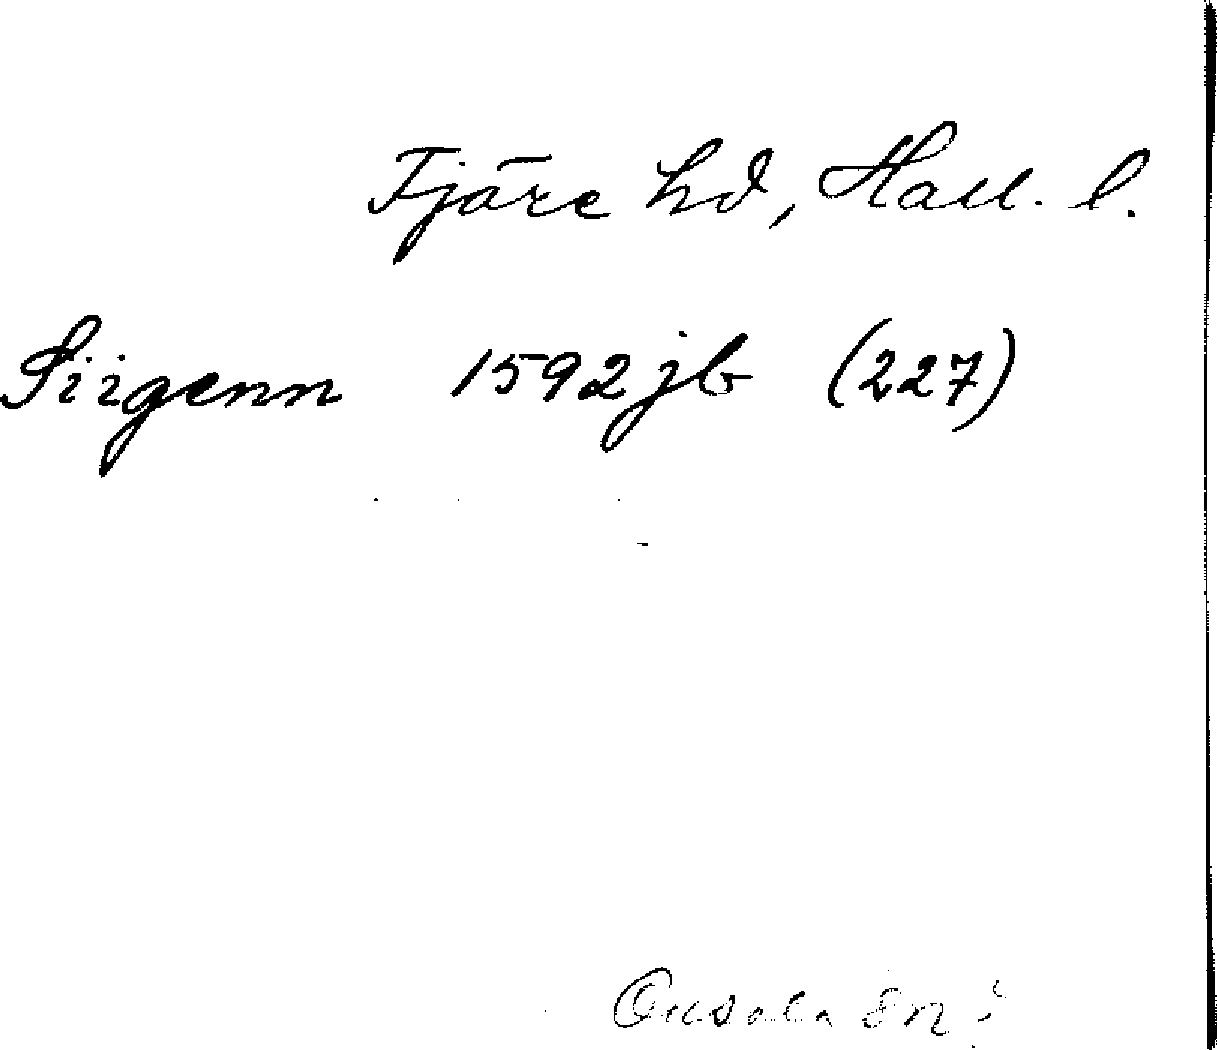 Fjäre hd, Hall. l.
Siigenn 1592 jb (227)
Onsala sn?